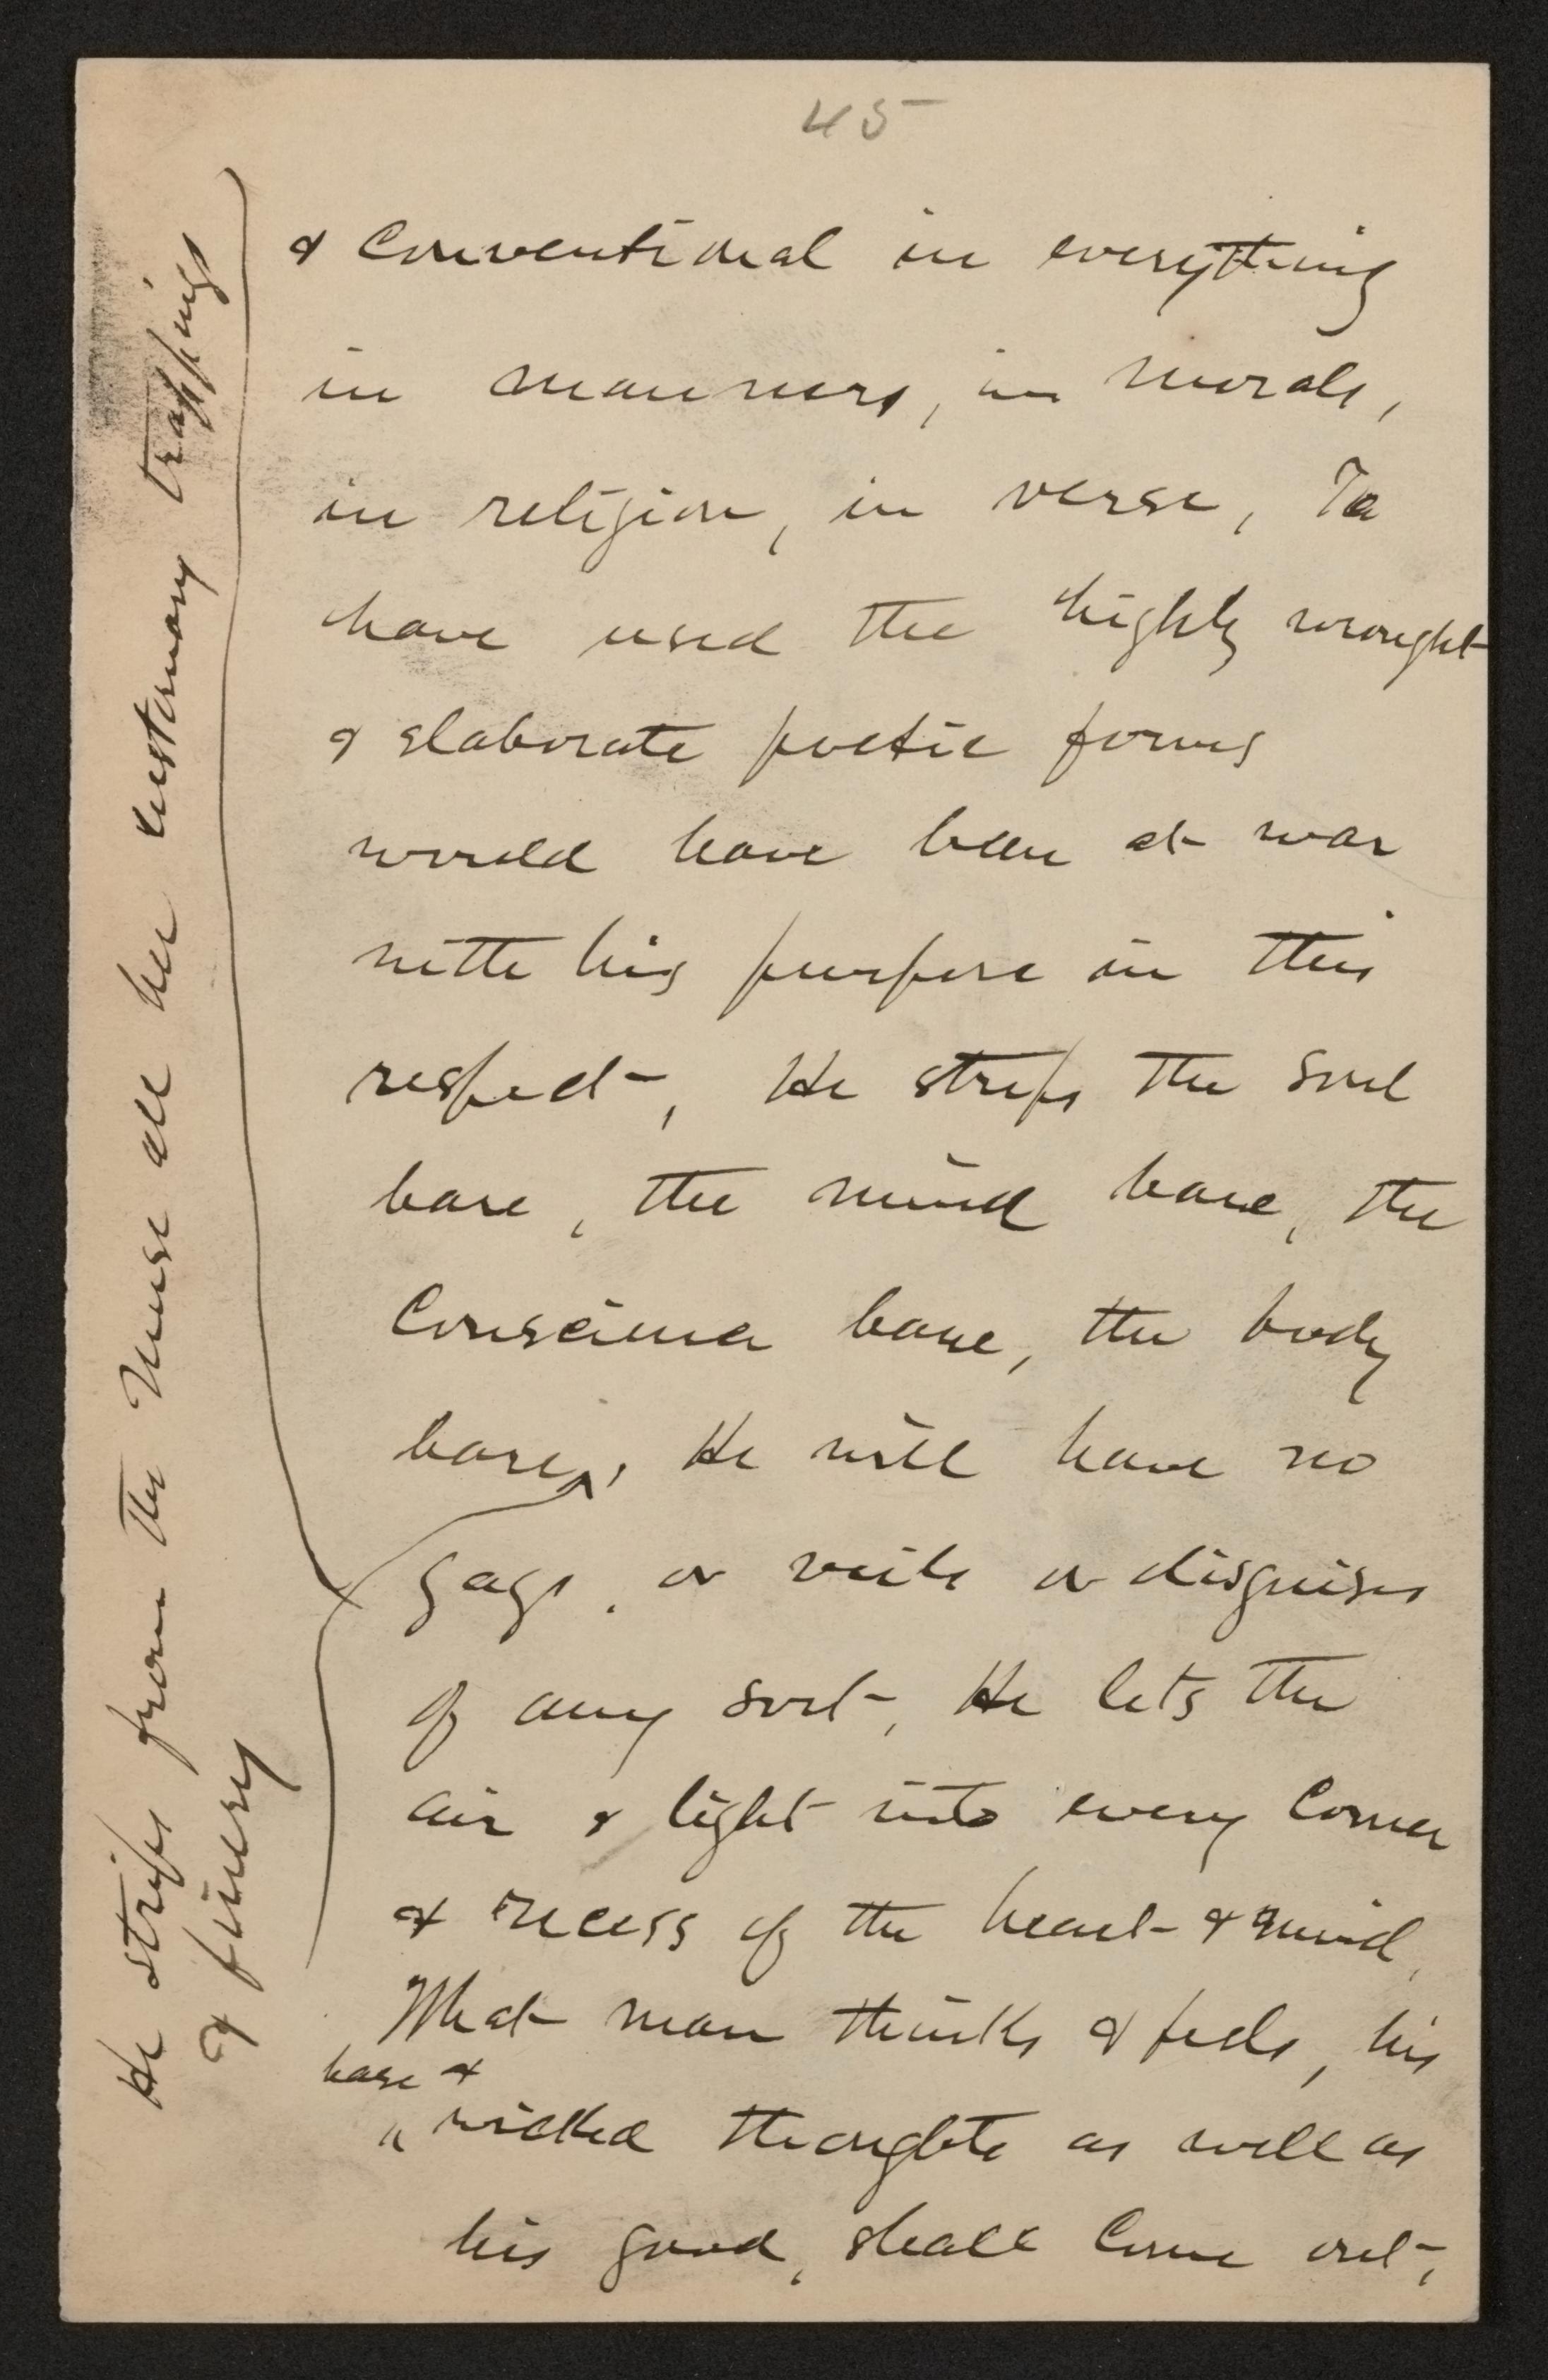 45
& conventional in everything
in manners, in morals,
in religion, in verse, To
have used the highly wrought
& elaborate poetic forms
would have been at war
with his purpose in this
respect, He strips the soul
bare, the mind bare, the
conscience bare, the body
bare, He will have no
gags, or veils or disguises
of any sort, He lets the
air & light into every corner
& recess of the heart & mind,
What man thinks & feels, his
base &
wicked thoughts as well as
his good, shall come out,
He strips from the Muse all her customary trappings
& finery